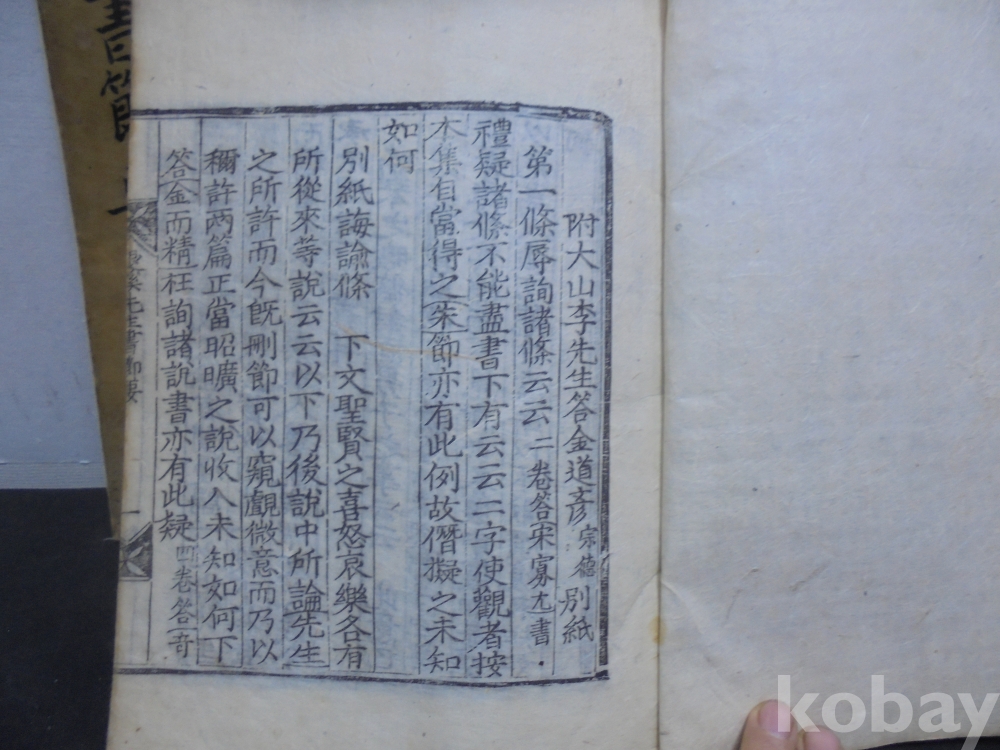 附大山李先生答金道彦宗德別紙
第一條辱詢諸條云云二卷答宋寡尤書
禮疑諸條不能盡書下有云云二字使觀者按
本集自當得之朱節亦有此例故僭擬之未知
如何
別紙誨諭條 下文聖賢之喜怒哀樂各有
所從來等說云云以下乃後說中所論先生
之所許而今旣刪節可以窺覰微意而乃以
稱許兩篇正當昭曠之說收入未知如何下
答金而精枉詢諸說書亦有此疑四卷答奇
溪先生書節要
一
書節
kobay